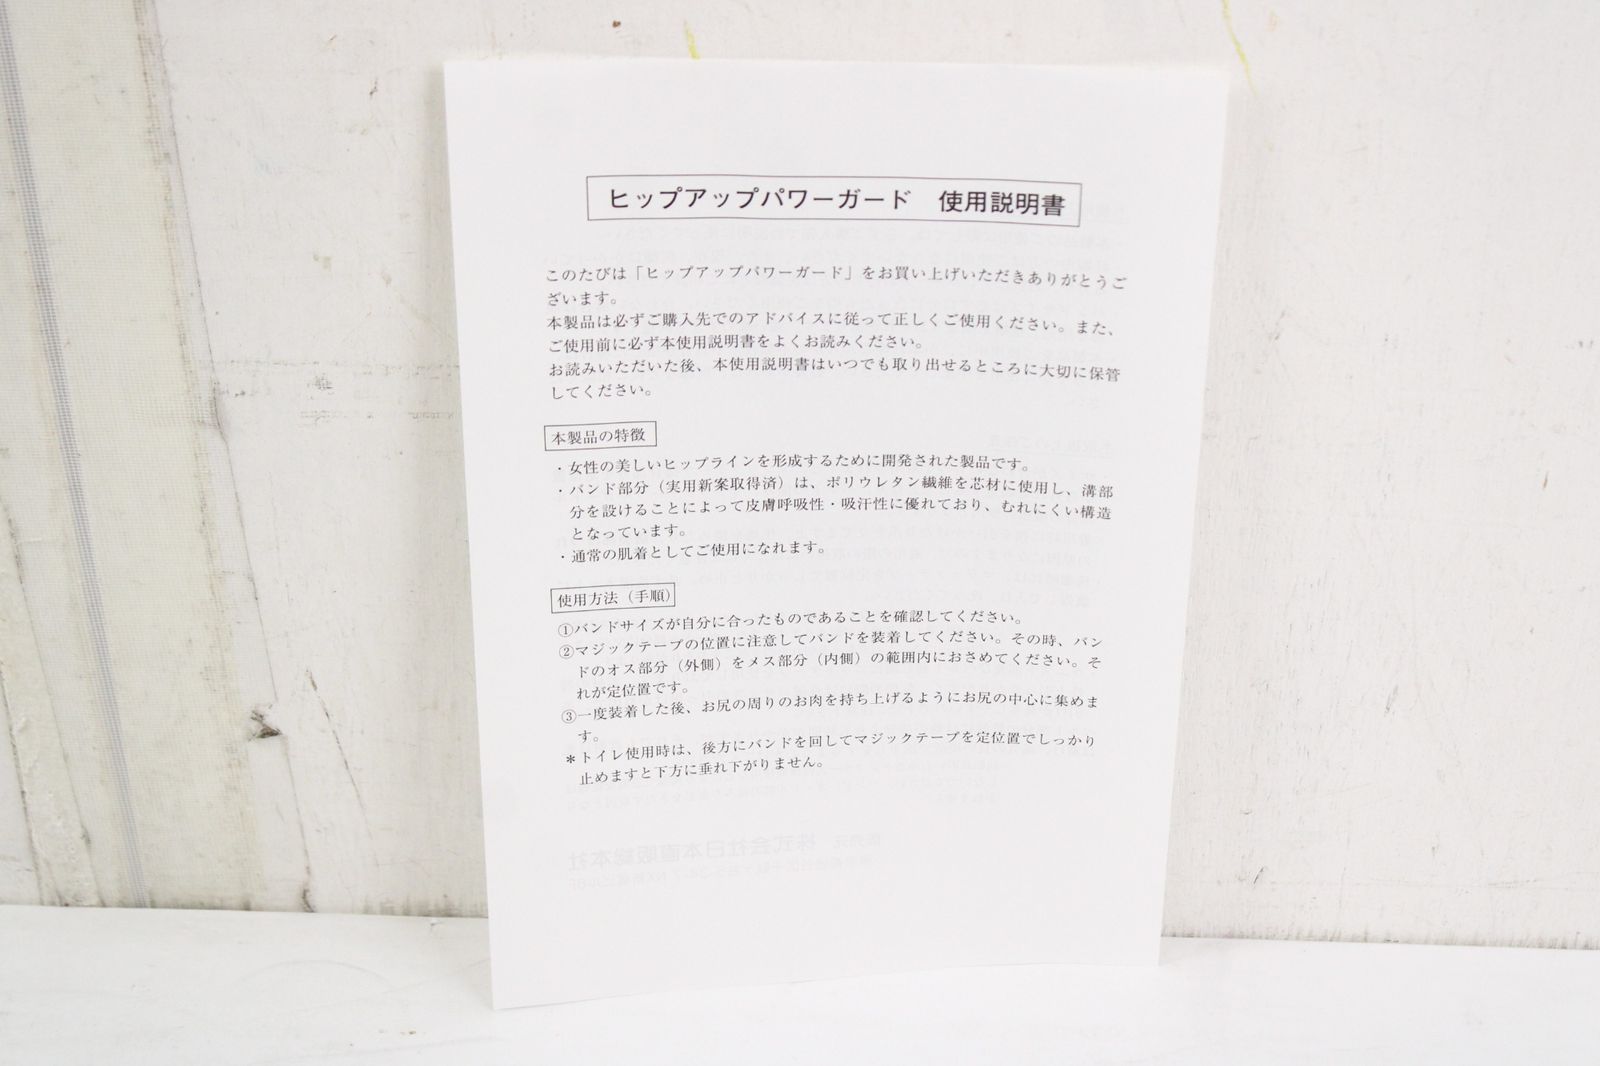 ヒップアップパワーガード　使用説明書
このたびは「ヒップアップパワーガード」をお買い上げいただきありがとうご
ざいます。
本製品は必ずご購入先でのアドバイスに従って正しくご使用ください。また、
ご使用前に必ず本使用説明書をよくお読みください。
お読みいただいた後、本使用説明書はいつでも取り出せるところに大切に保管
してください。
本製品の特徴
・女性の美しいヒップラインを形成するために開発された製品です。
・バンド部分（実用新案取得済）は、ポリウレタン繊維を芯材に使用し、溝部
分を設けることによって皮膚呼吸性・吸汗性に優れており、むれにくい構造
となっています。
・通常の肌着としてご使用になれます。
使用方法（手順）
①バンドサイズが自分に合ったものであることを確認してください。
②マジックテープの位置に注意してバンドを装着してください。その時、バン
ドのオス部分（外側）をメス部分（内側）の範囲内におさめてください。そ
れが定位置です。
③一度装着した後、お尻の周りのお肉を持ち上げるようにお尻の中心に集めま
す。
＊トイレ使用時は、後方にバンドを回してマジックテープを定位置でしっかり
止めますと下方に垂れ下がりません。
株式会社日本直販総本社